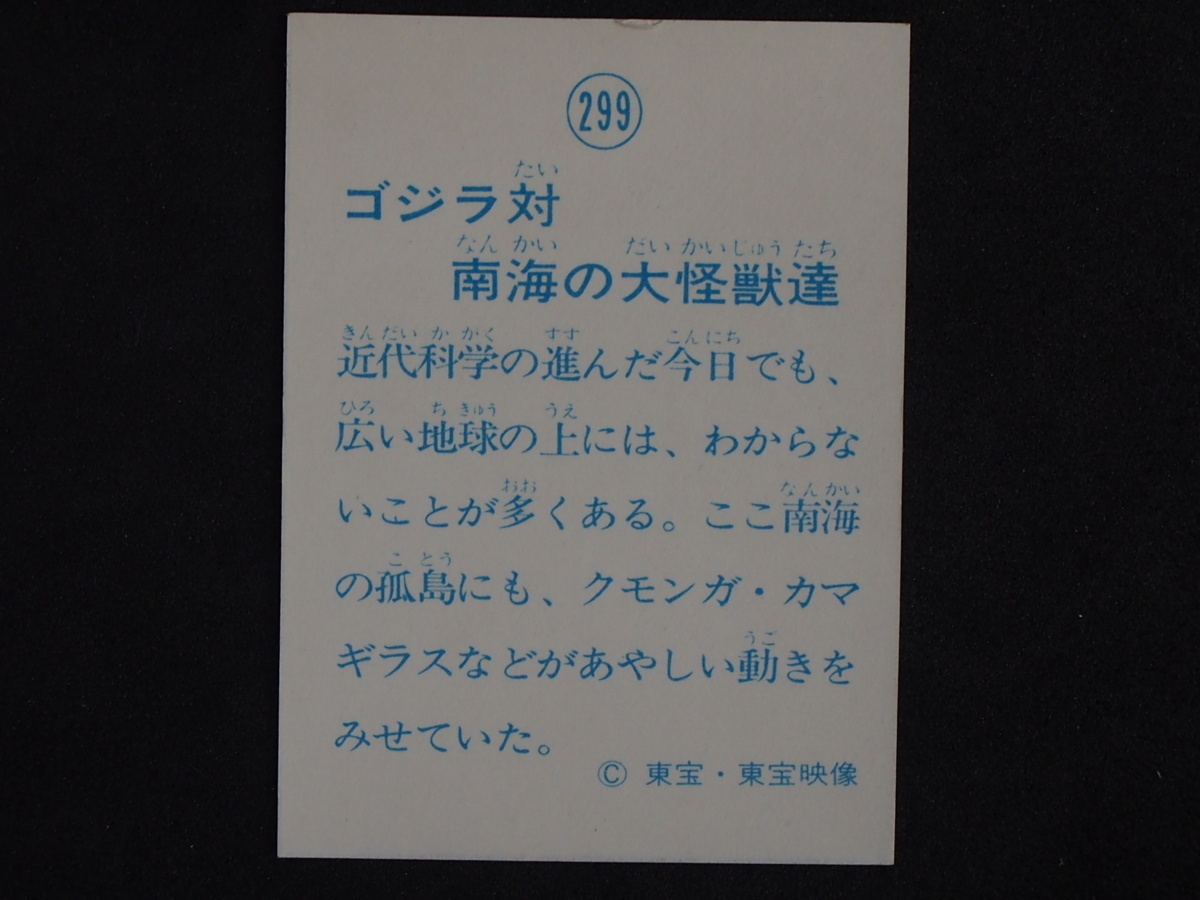 299
たい
ゴジラ対
なんかい だいかいじゅうたち
南海の大怪獣達
きんだいかがく すす こんにち
近代科学の進んだ今日でも、
ひろ ちきゅう うえ
広い地球の上には、わからな
おお なんかい
いことが多くある。ここ南海
ことう
の孤島にも、クモンガ・カマ
うご
ギラスなどがあやしい動きを
みせていた。
© 東宝・東宝映像